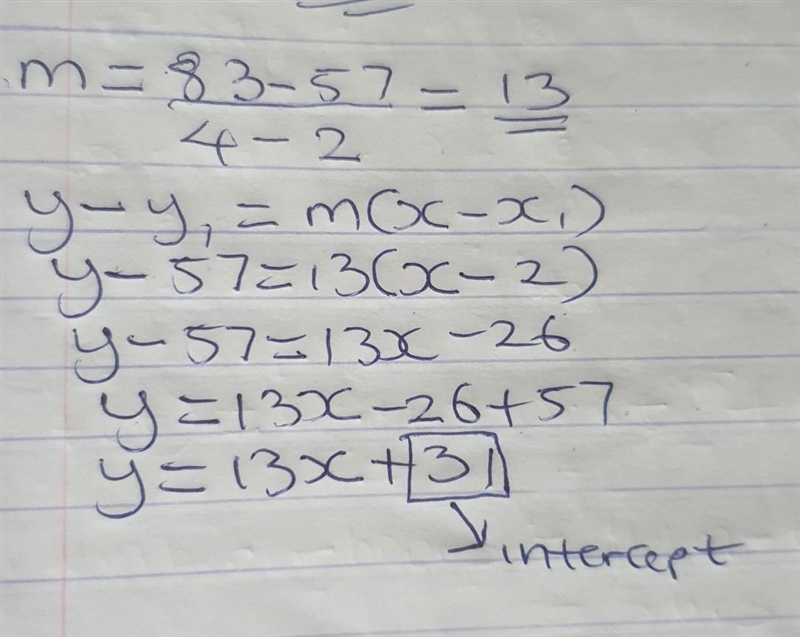 m = 83-57 = 13
4-2
y-y₁ = m(x-x₁)
y-57=13(x-2)
y-57=13x-26
y=13x-26+57
y=13x+31
intercept